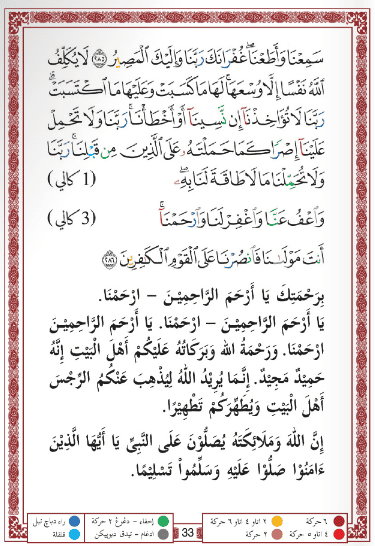 سَمِعْنَا وَأَطَعْنَا ۖ غُفْرَانَكَ رَبَّنَا وَإِلَيْكَ ٱلْمَصِيرُ ۝٢٨٥ لَا يُكَلِّفُ
ٱللَّهُ نَفْسًا إِلَّا وُسْعَهَا ۚ لَهَا مَا كَسَبَتْ وَعَلَيْهَا مَا ٱكْتَسَبَتْ ۗ
رَبَّنَا لَا تُؤَاخِذْنَآ إِن نَّسِينَآ أَوْ أَخْطَأْنَا ۚ رَبَّنَا وَلَا تَحْمِلْ
عَلَيْنَآ إِصْرًا كَمَا حَمَلْتَهُۥ عَلَى ٱلَّذِينَ مِن قَبْلِنَا ۚ رَبَّنَا
وَلَا تُحَمِّلْنَا مَا لَا طَاقَةَ لَنَا بِهِۦ ۖ (1 كالي)
وَٱعْفُ عَنَّا وَٱغْفِرْ لَنَا وَٱرْحَمْنَآ ۚ (3 كالي)
أَنتَ مَوْلَىٰنَا فَٱنصُرْنَا عَلَى ٱلْقَوْمِ ٱلْكَٰفِرِينَ ۝٢٨٦
بِرَحْمَتِكَ يَا أَرْحَمَ الرَّاحِمِيْنَ – ارْحَمْنَا.
يَا أَرْحَمَ الرَّاحِمِيْنَ – ارْحَمْنَا. يَا أَرْحَمَ الرَّاحِمِيْنَ
ارْحَمْنَا. وَرَحْمَةُ الله وَبَرَكَاتُهُ عَلَيْكُمْ أَهْلَ الْبَيْتِ إِنَّهُ
حَمِيْدٌ مَجِيْدٌ. إِنَّمَا يُرِيْدُ اللَّهُ لِيُذْهِبَ عَنْكُمُ الرِّجْسَ
أَهْلَ الْبَيْتِ وَيُطَهِّرَكُمْ تَطْهِيْرًا.
إِنَّ اللهَ وَمَلَائِكَتَهُ يُصَلُّوْنَ عَلَى النَّبِيِّ يَا أَيُّهَا الَّذِيْنَ
ءَامَنُوْا صَلُّوْا عَلَيْهِ وَسَلِّمُواْ تَسْلِيْمًا.
٦ حركة ٢ اتاو ٤ اتاو ٦ حركة 33 إخفاء – دغوغ ٢ حركة
٤ اتاو ٥ حركة ٢ حركة ادغام – تيدق دبوپيكن قلقلة